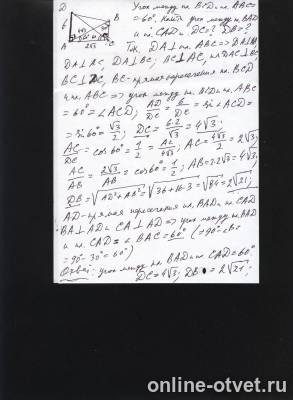 D
Угол между пл. BCD и пл. ABC
6
B
= 60°. Найти угол между пл. BAD
и пл. CAD. DC = ? DB = ?
A 2√3 C
DA ⊥ пл. ABC ⇒
DA ⊥ AC, DA ⊥ BC; BC ⊥ AC,
BC - прямая пересечения пл. BCD
и пл. ABC ⇒ угол между пл. BCD и пл. ABC =
= 60° = ∠ACD; AD/DC = 6/DC = sin∠ACD =
= sin 60° = √3/2; DC = 6·2/√3 = 4√3;
AC/DC = cos 60° = 1/2 = AC/4√3; AC = 4√3/2 = 2√3;
AC/AB = 2√3/AB = cos 60° = 1/2; AB = 2·2√3 = 4√3;
DB = √AD²+AB² = √36+16·3 = √84 = 2√21;
AD - прямая пересечения пл. BAD и пл. CAD
BA ⊥ AD и CA ⊥ AD ⇒ угол между пл. BAD
и пл. CAD = ∠BAC = 60°
= 90° - 30° = 60°)
Ответ: угол между пл. BAD и пл. CAD = 60°
DC = 4√3; DB = 2√21;
online-otvet.ru